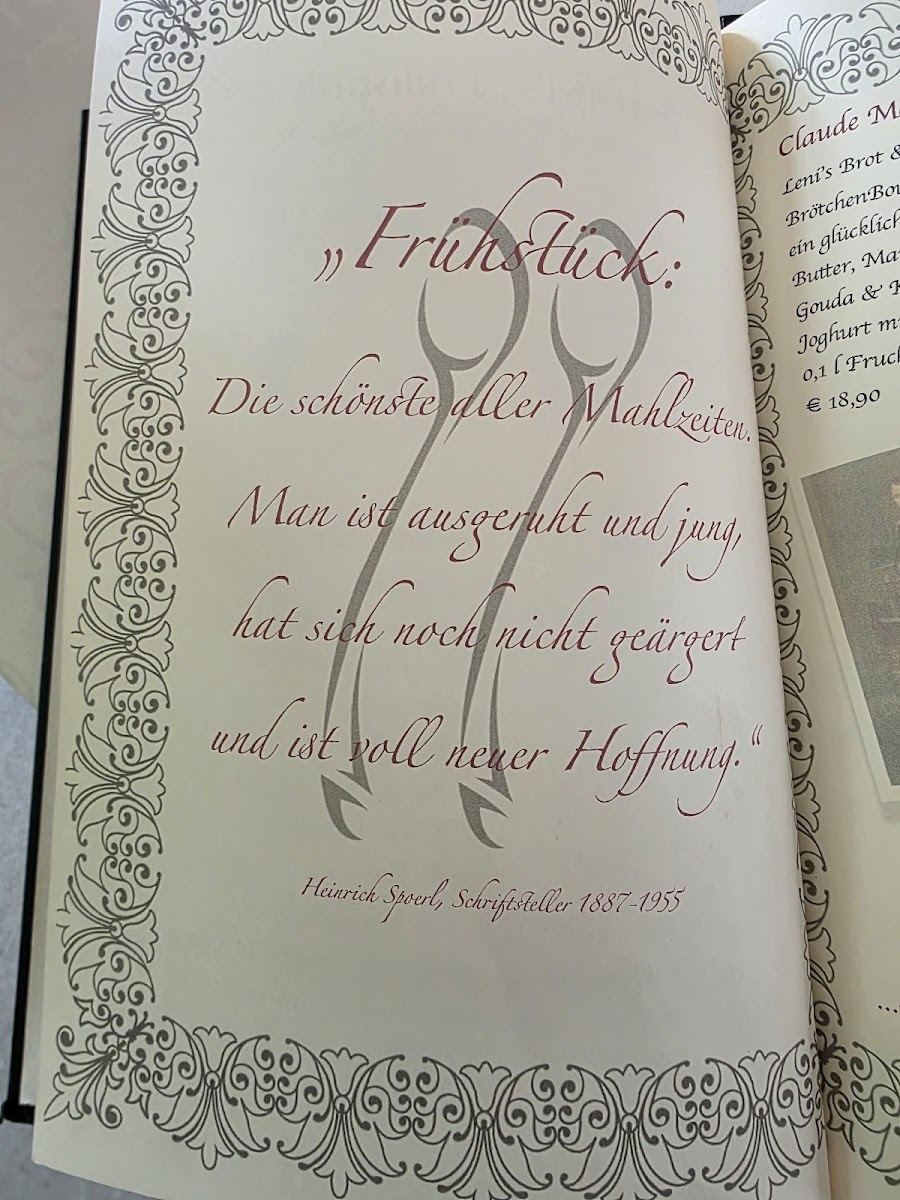 „Frühstück:
Die schönste aller Mahlzeiten.
Man ist ausgeruht und jung,
hat sich noch nicht geärgert
und ist voll neuer Hoffnung.“
Heinrich Spoerl, Schriftsteller 1887-1955
Claude
Leni's Brot &
ein
Butter,
Gouda &
Joghurt
0,1 l
€ 18,90